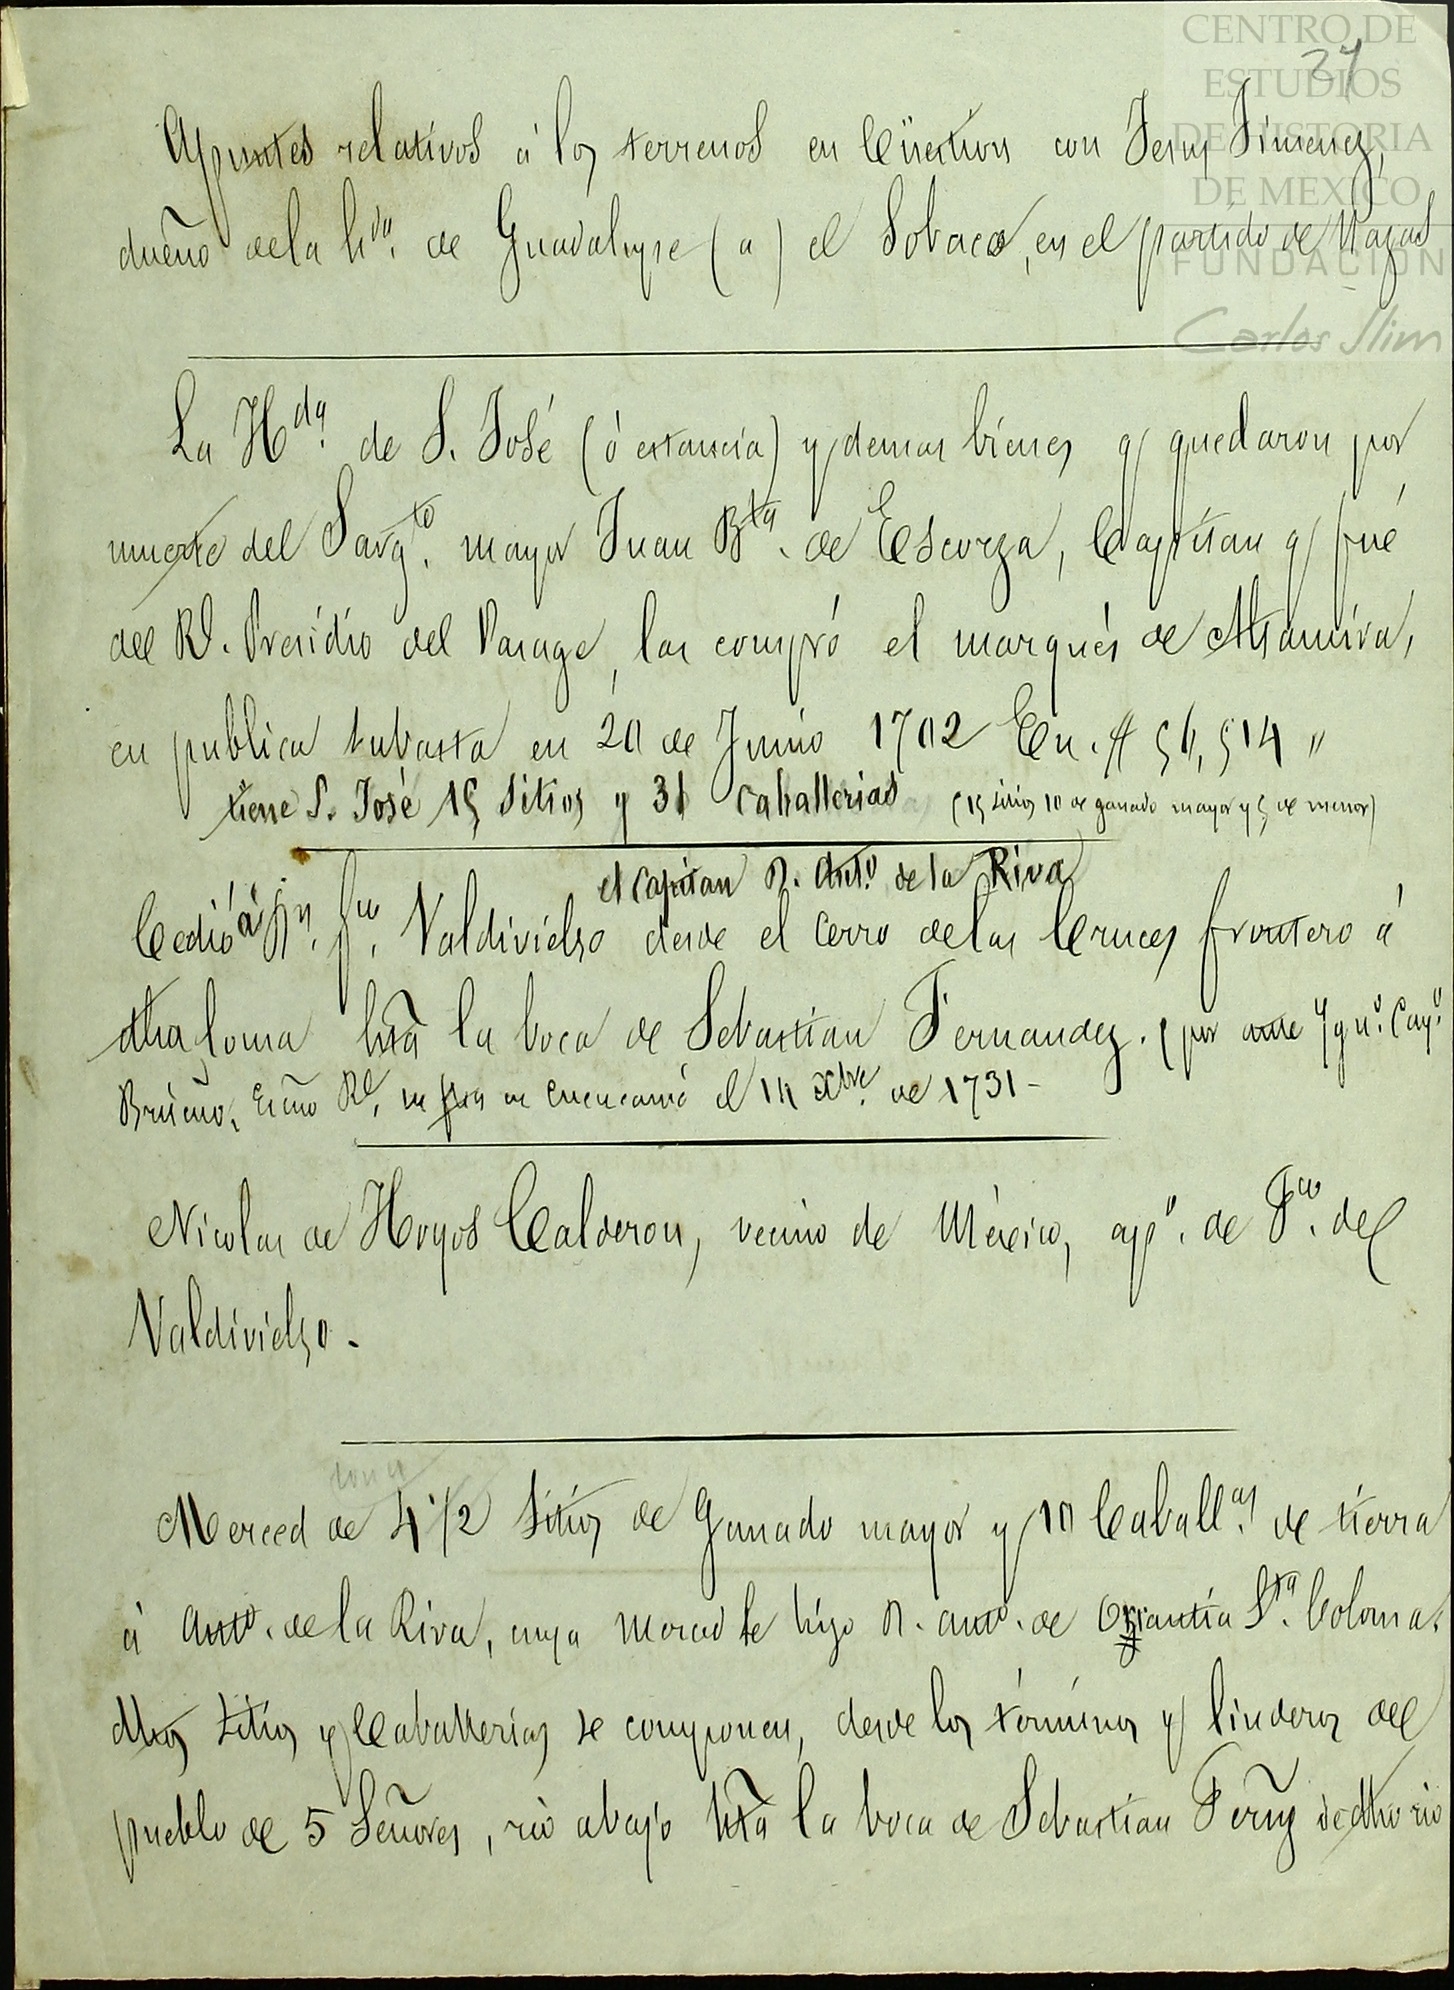 CENTRO DE
ESTUDIOS
DE HISTORIA
DE MEXICO
FUNDACION
Carlos Slim
Apuntes relativos á los terrenos en Cüestion con Jesus Jimenez,
dueño dela hda. de Guadalupe (a) el Sobaco, en el partido de Nazas
La Hda. de S. José (ó estancia) y demas bienes q quedaron por
muerte del Sargto. mayor Juan Bta. de Escorza, Capitan q fué
del Rl. Presidio del Pasage, las compró el marqués de Altamira,
en publica subasta en 20 de Junio 1702 En $ 56,514 "
tiene S. José 15 sitios y 31 caballerias (15 sitios 10 de ganado mayor y 5 de menor)
el Capitan D. Anto. de la Riva
Cedió á Dn. Fco. Valdivielso desde el cerro delas Cruces frontero á
dha loma hta la boca de Sebastian Fernandez. (por ante Ygno. Cayo.
Briseño, Esno Rl, en Cuencamé el 10 Xbre. de 1731-
Nicolas de Hoyos Calderon, vecino de México, apo. de Fco. del
Valdivielso.
Merced de 4 1/2 Sitios de Ganado mayor y 10 Caballas. de tierra
á Anto. de la Riva, cuya merced le hizo D. Anto. de Orrantia Sta. Coloma.
dhos sitios y Caballerias se componen, desde los términos y linderos del
pueblo de 5 Señores, rio abajo hta la boca de Sebastian Ferñz de dho rio